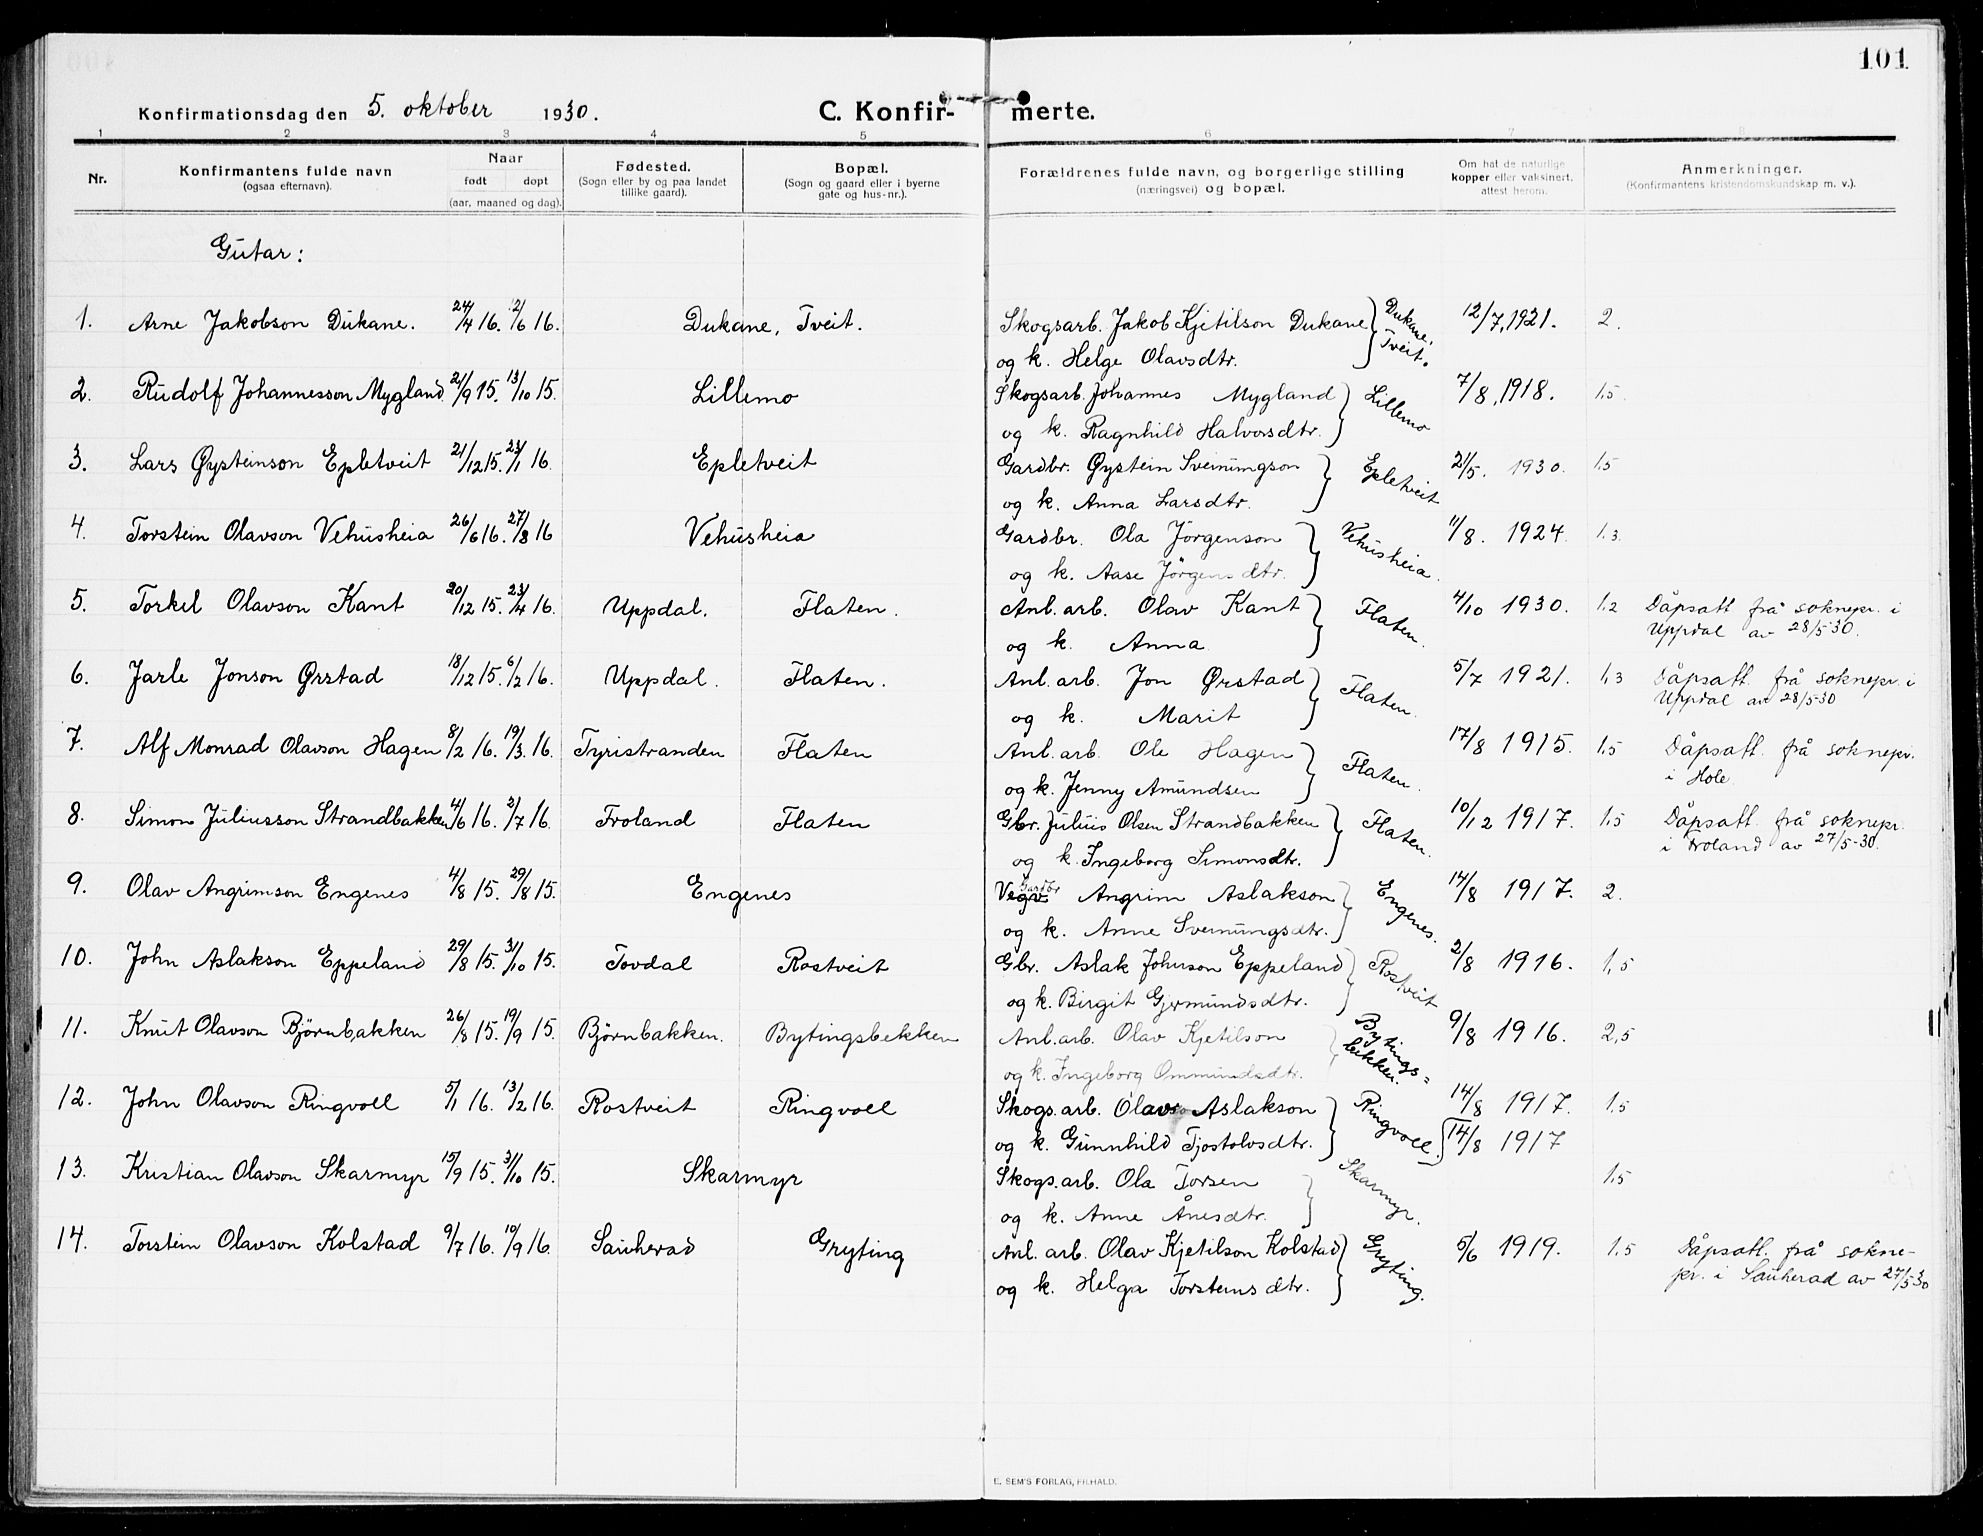 101
Konfirmationsdag den 5. oktober 1930. C. Konfir- merte.
1 2 3 4 5 6 7 8
Nr. Konfirmantens fulde navn (ogsaa efternavn). Naar født døpt (aar, maaned og dag). Fødested. (Sogn eller by og paa landet tillike gaard). Bopæl. (Sogn og gaard eller i byerne gate og hus-nr.). Forældrenes fulde navn, og borgerlige stilling (næringsvei) og bopæl. Om hat de naturlige kopper eller vaksinert, attest herom. Anmerkninger. (Konfirmantens kristendomskundskap m. v.).
Gutar:
1. Arne Jakobson Dukane. 24/4 16. 12/6 16. Dukane, Tveit. Skogsarb. Jakob Kjetilson Dukane Dukane, Tveit. 12/7, 1921. 2.
og k. Helge Olavsdtr.
2. Rudolf Johannesson Mygland 21/9 15. 13/10 15. Lillemo Skogsarb. Johannes Mygland Lillemo 7/8, 1918. 1,5.
og k. Ragnhild Halvorsdtr.
3. Lars Øysteinson Epletveit 21/12 15. 23/1 16. Epletveit Gardbr. Øystein Sveinungson Epletveit 21/5. 1930. 1,5
og k. Anna Larsdtr.
4. Torstein Olavson Vehusheia 26/6 16. 27/8 16 Vehusheia Gardbr. Ola Jörgenson Vehusheia. 11/8. 1924. 1,3.
og k. Aase Jörgensdtr.
5. Torkel Olavson Kant 20/12 15. 23/4 16. Uppdal. Flaten. Anl. arb. Olav Kant Flaten. 4/10 1930. 1,2 Dåpsatt frå soknepr. i
og k. Anna Uppdal av 28/5 30.
6. Jarle Jonson Ørstad 18/12 15. 6/2 16. Uppdal. Flaten. Anl. arb. Jon Ørstad Flaten. 5/7 1921. 1,3 Dåpsatt. frå soknepr. i
og k. Marit Uppdal av 28/5-30
7. Alf Monrad Olavson Hagen 8/2 16. 19/3. 16. Tyristranden Flaten Anl. arb. Ole Hagen Flaten. 17/8 1915. 1,5 Dåpsatt. frå soknepr.
og k. Jenny Amundsen i Hole.
8. Simon Juliusson Strandbakken 4/6 16. 2/7 16. Froland Flaten Gbr. Julius Olsen Strandbakken Flaten. 10/12 1917. 1,5 Dåpsatt. frå soknepr.
og k. Ingeborg Simonsdtr. i Froland av 27/5-30.
9. Olav Angrimson Engenes 4/8 15. 29/8 15. Engenes Vegv. Gardbr Angrim Aslakson Engenes. 14/8 1917. 2.
og k. Anne Sveinungsdtr.
10. John Aslakson Eppeland 29/8 15. 31/10 15. Tovdal Rostveit Gbr. Aslak Johnson Eppeland Rostveit 2/8 1916. 1,5
og k. Birgit Gjermundsdtr.
11. Knut Olavson Björnbakken 26/8 15. 19/9 15. Björnbakken. Bytingsbekken Anl. arb. Olav Kjetilson Bytings= bekken. 9/8 1916. 2,5
og k. Ingeborg Ommundsdtr.
12. John Olavson Ringvoll 5/1 16. 13/2 16. Rostveit Ringvoll Skogs.arb. Olav Aslakson Ringvoll. 14/8 1917. 1,5
og k. Gunnhild Tjostolvsdtr. 14/8 1917
13. Kristian Olavson Skarmyr 15/9 15. 31/10 15. Skarmyr Skogs.arb. Ola Torsen Skarmyr. 1,5
og k. Anne Ånesdtr.
14. Torstein Olavson Kolstad 9/7 16. 10/9 16. Sauherad Gryting Anl. arb. Olav Kjetilson Kolstad Gryting. 5/6 1919. 1,5 Dåpsatt. frå sokne-
og k. Helga Torsteinsdtr. pr. i Sauherad av 27/5 30
E. SEM'S FORLAG, FR.HALD.